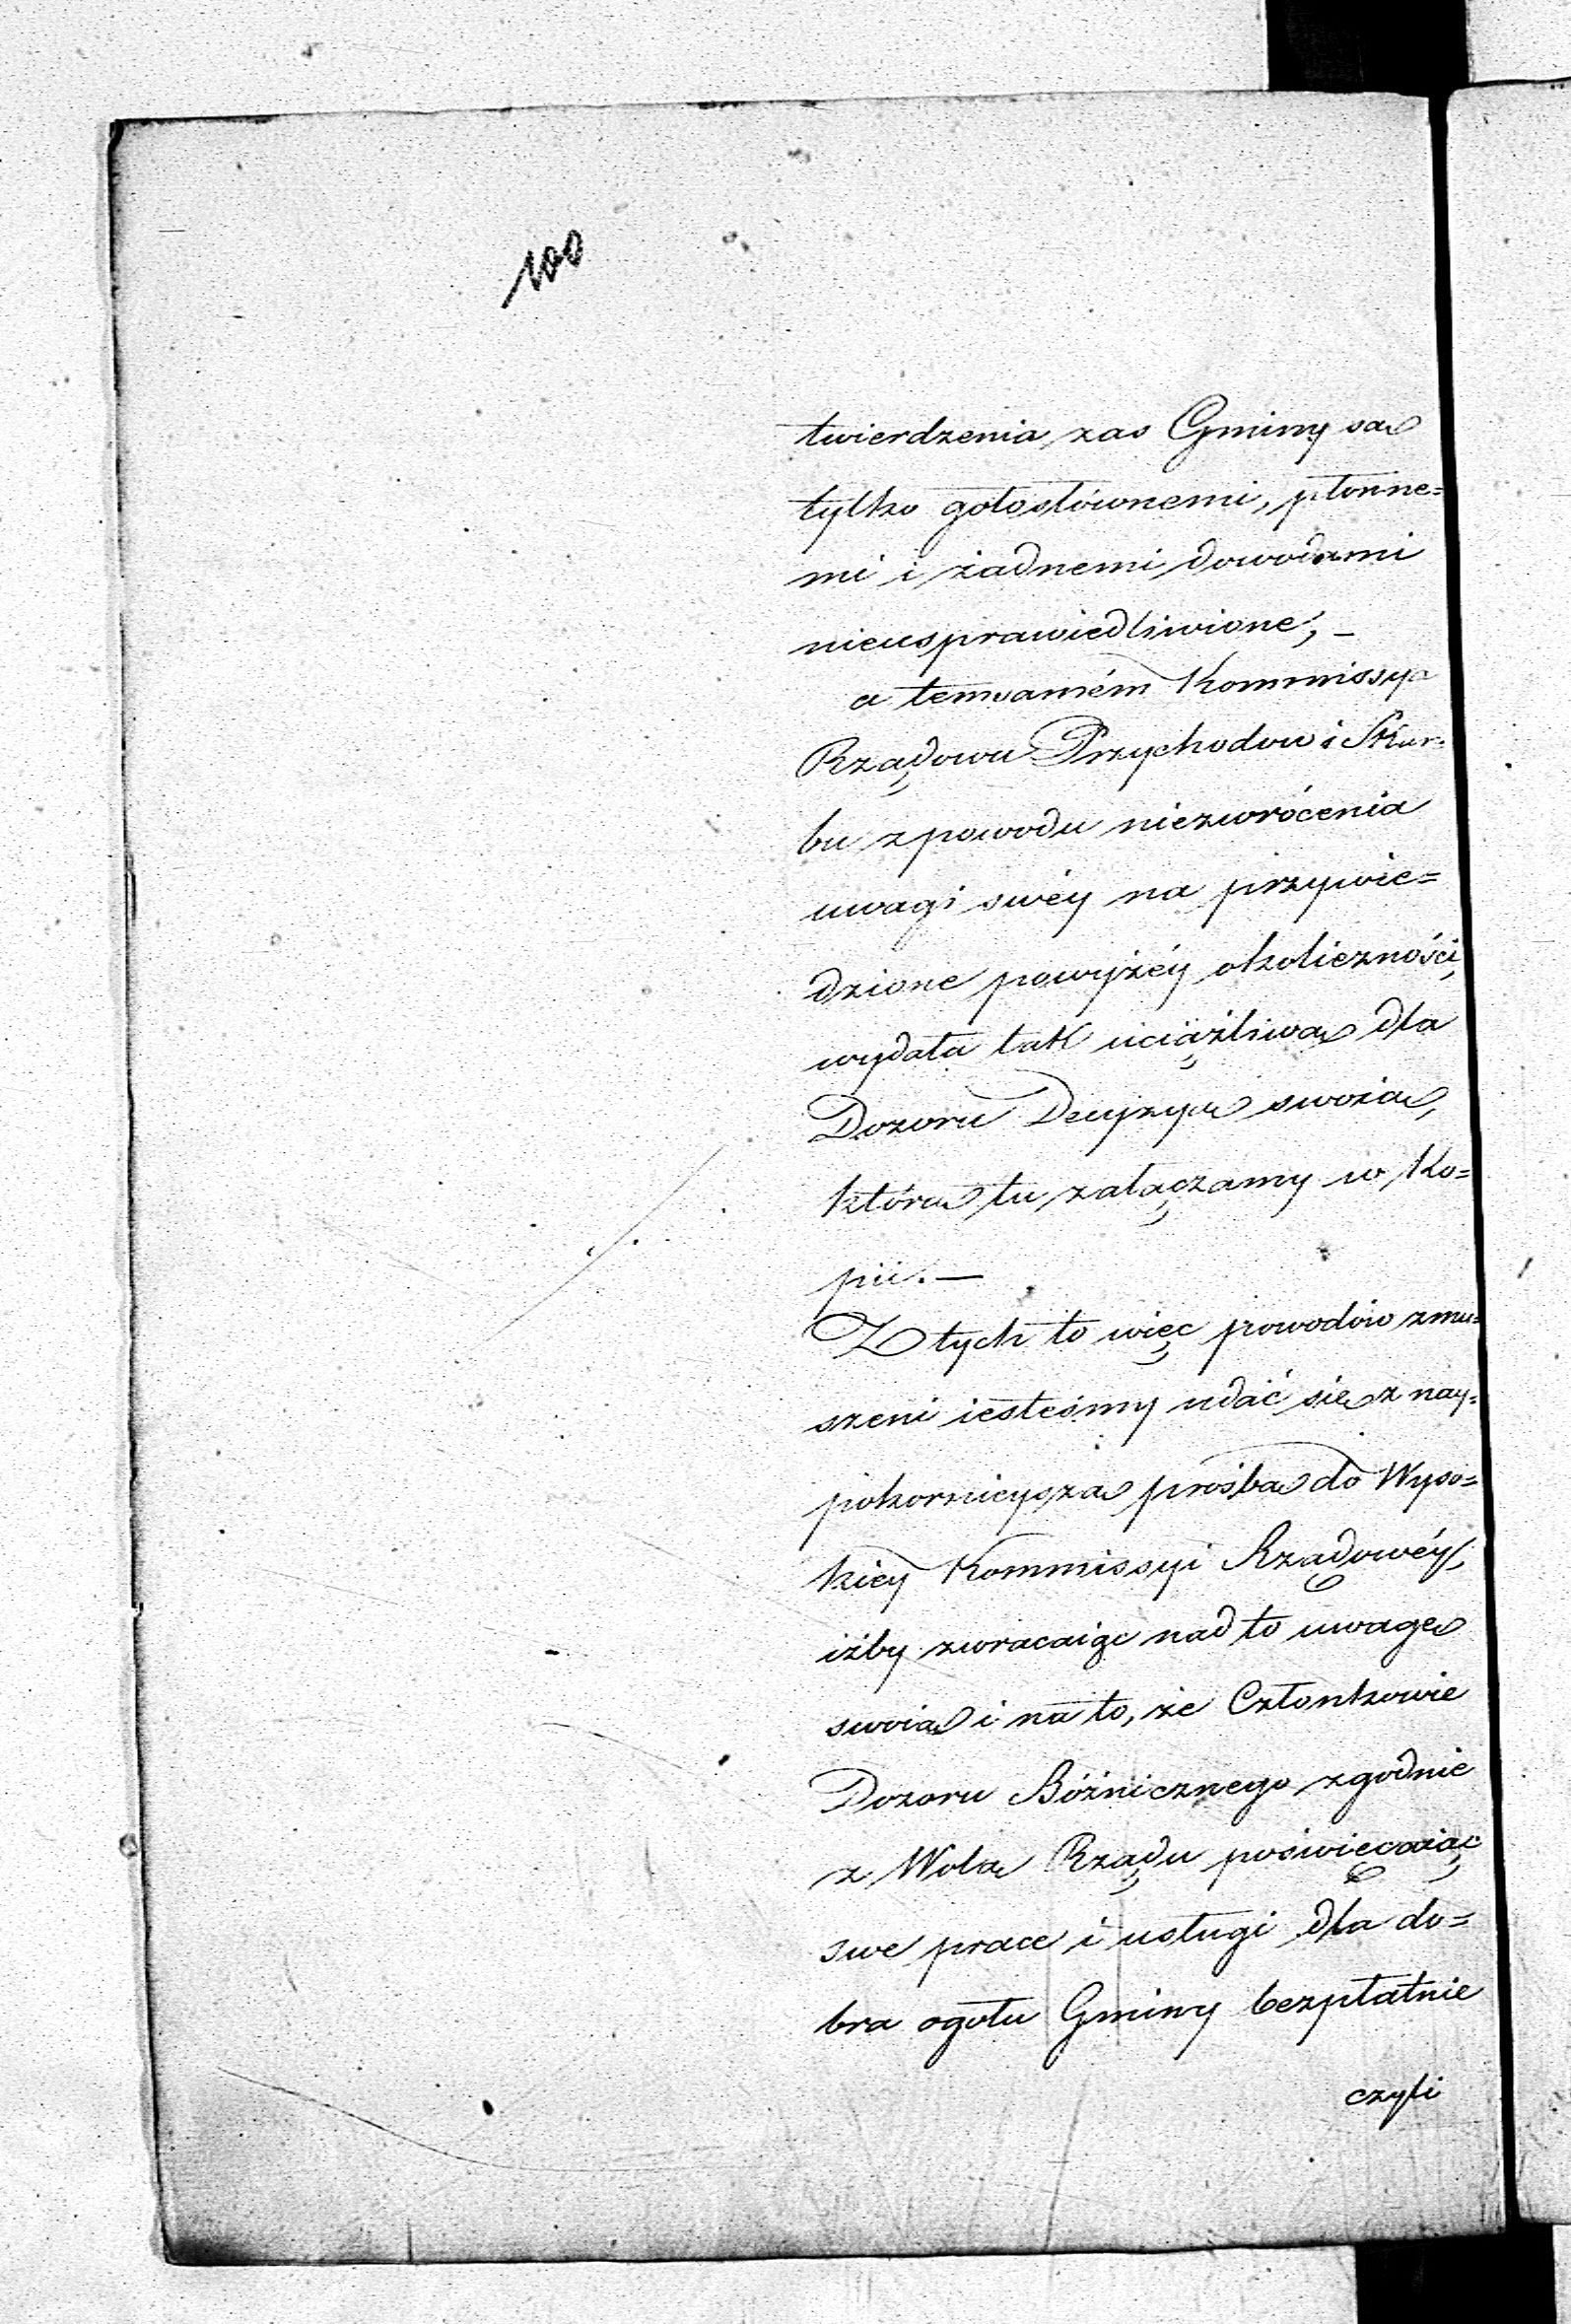 100
twierdzenia zas Gminy są
tylko gołosłównemi, płonne=
mi i żadnemi dowodami
nieusprawiedliwione, _
a temsamém Kommissya
Rządowa Przychodow i Skar=
bu z powodu niezwrócenia
uwagi swéy na przywie=
dzione powyżéy okoliczności,
wydała tak uciążliwą dla
Dozoru Decyzyą swoią,
którą tu załączamy w Ko=
pii. —
Z tych to więc powodów zmu=
szeni iesteśmy udać się z nay=
pokornieyszą prośbą do Wyso=
kiey Kommissyi Rządowéy,
iżby zwracaiąc nad to uwagę
swoią i na to, że Członkowie
Dozoru Bóźnicznego zgodnie
z Wolą Rządu poświęcaiąc
swe prace i usługi dla do=
bra ogołu Gminy bezpłatnie
czyli